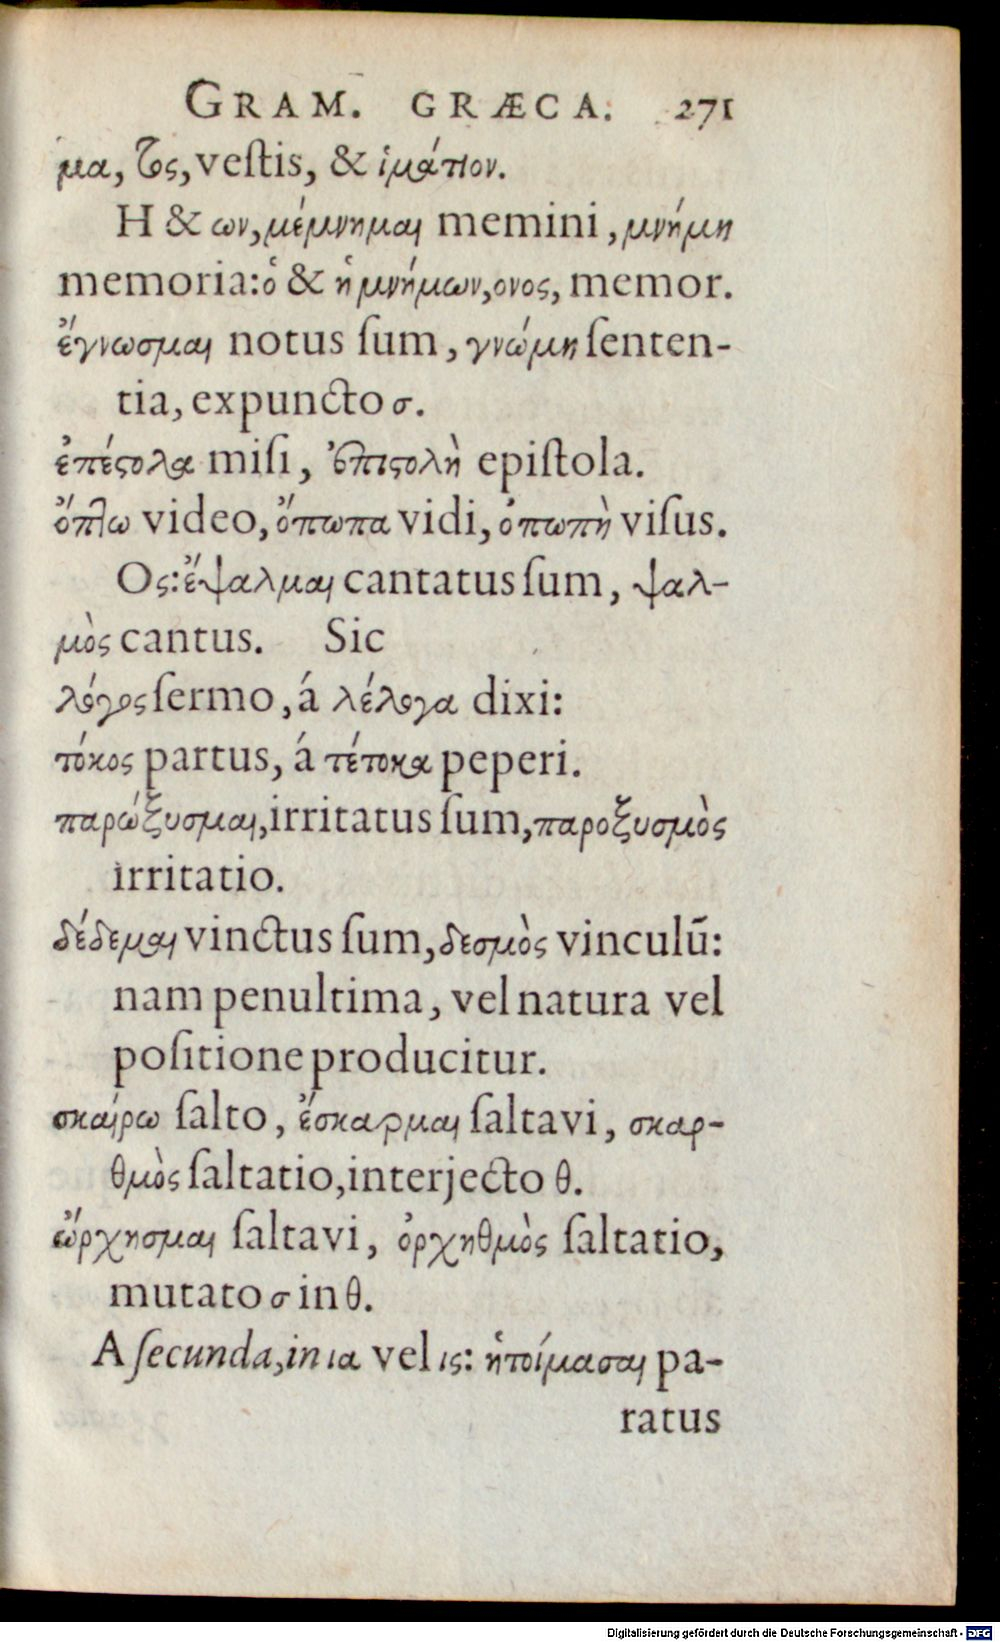 GRAM. GRÆCA. 271
μα, τος, veſtis, & ἱμάτιον.
Η & ων, μέμνημαι memini, μνήμη
memoria: ὁ & ἡ μνήμων, ονος, memor.
ἔγνωσμαι notus ſum, γνώμη ſenten-
tia, expuncto σ.
ἐπέςολα miſi, ἐπιςολὴ epiſtola.
ὄπτω video, ὄπωπα vidi, ὀπωπὴ viſus.
Ος: ἔψαλμαι cantatus ſum, ψαλ-
μὸς cantus. Sic
λόγος ſermo, á λέλογα dixi:
τόκος partus, á τέτοκα peperi.
παρώξυσμαι, irritatus ſum, παροξυσμὸς
irritatio.
δέδεμαι vinctus ſum, δεσμὸς vinculū:
nam penultima, vel natura vel
poſitione producitur.
σκαίρω ſalto, ἔσκαρμαι ſaltavi, σκαρ-
θμὸς ſaltatio, interjecto θ.
ὤρχησμαι ſaltavi, ὀρχηθμὸς ſaltatio,
mutato σ in θ.
A ſecunda, in ια vel ις: ἡτοίμασαι pa-
ratus
Digitalisierung gefördert durch die Deutsche Forschungsgemeinschaft - DFG